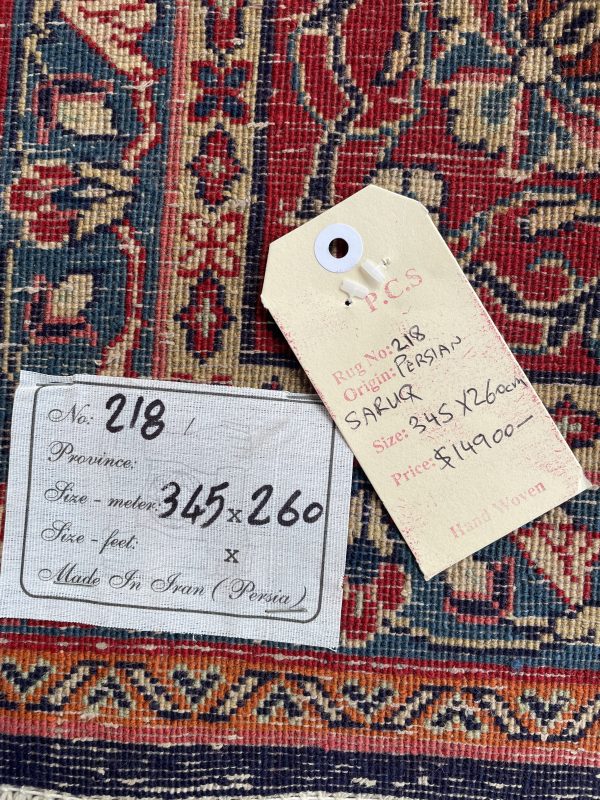 P.C.S
Rug No: 218
Origin: PERSIAN
SARUQ
Size: 345 X 260 cm
Price: $14900—
Hand Woven
No: 218 /
Province:
Size - meter: 345 x 260
Size - feet: x
Made In Iran (Persia)